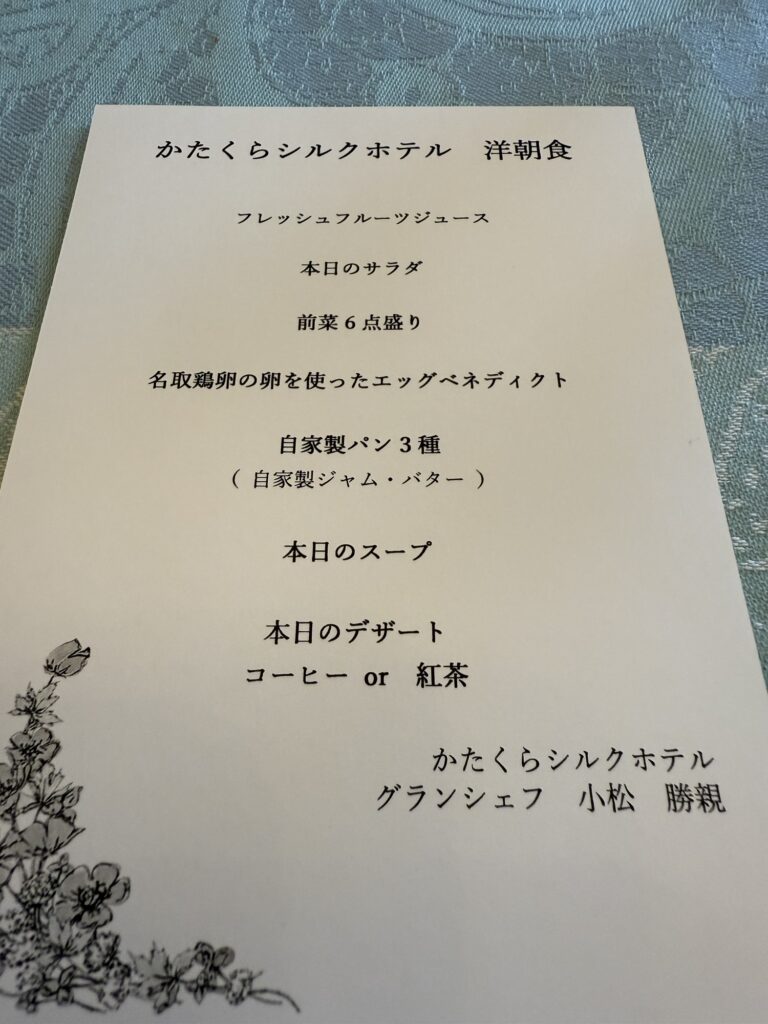 かたくらシルクホテル　洋朝食
フレッシュフルーツジュース
本日のサラダ
前菜6点盛り
名取鶏卵の卵を使ったエッグベネディクト
自家製パン3種
（ 自家製ジャム・バター ）
本日のスープ
本日のデザート
コーヒー or　紅茶
かたくらシルクホテル
グランシェフ　小松　勝親